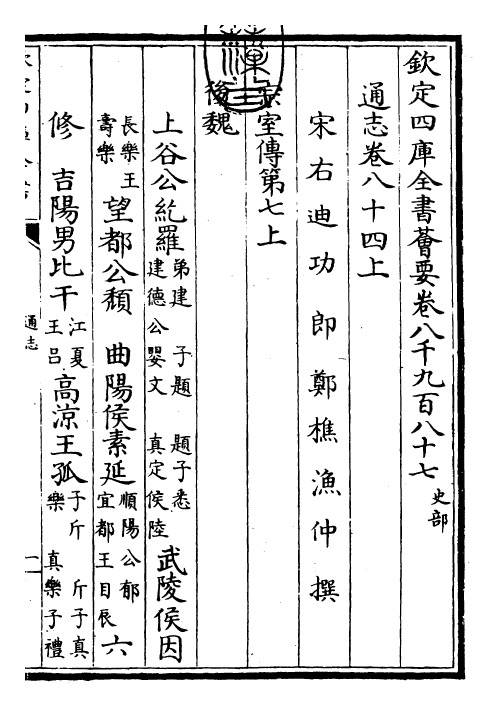 欽定四庫全書薈要卷八千九百八十七 史部
通志卷八十四上
宋右迪功郎鄭樵漁仲撰
宗室傳第七上
後魏
上谷公紇羅 弟建 子題 題子悉 建德公嬰文 真定侯陸 武陵侯因
長樂王壽樂 望都公頹 曲陽侯素延 順陽公郁 宜都王目辰 六
修 吉陽男比干 江夏王呂 高涼王孤 子斤 斤子真 樂 真樂子禮
通志
一